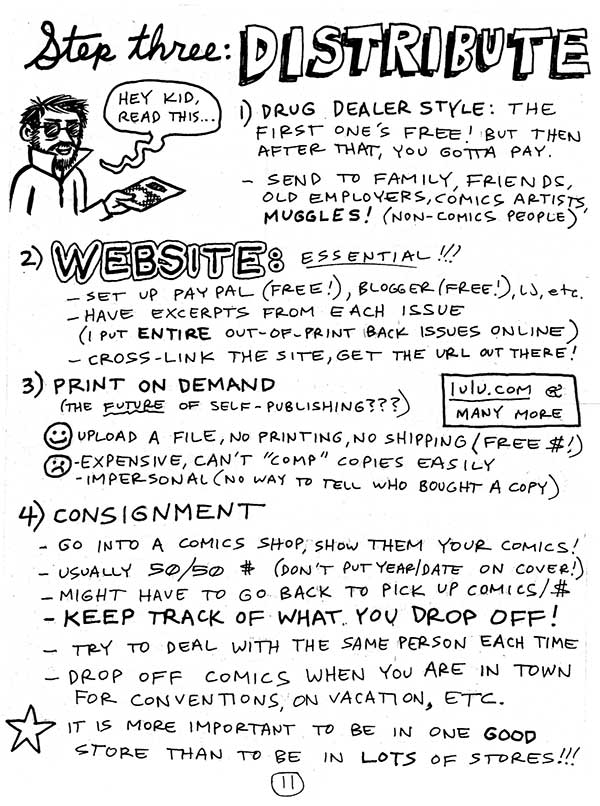 Step three: DISTRIBUTE
HEY KID,
READ THIS...
1) DRUG DEALER STYLE: THE
FIRST ONE'S FREE! BUT THEN
AFTER THAT, YOU GOTTA PAY.
- SEND TO FAMILY, FRIENDS,
OLD EMPLOYERS, COMICS ARTISTS,
MUGGLES! (NON-COMICS PEOPLE)
2) WEBSITE: ESSENTIAL!!!
- SET UP PAYPAL (FREE!), BLOGGER (FREE!), LJ, etc.
- HAVE EXCERPTS FROM EACH ISSUE
(I PUT ENTIRE OUT-OF-PRINT BACK ISSUES ONLINE)
- CROSS-LINK THE SITE, GET THE URL OUT THERE!
3) PRINT ON DEMAND
(THE FUTURE OF SELF-PUBLISHING???)
lulu.com @
MANY MORE
UPLOAD A FILE, NO PRINTING, NO SHIPPING (FREE $!)
- EXPENSIVE, CAN'T "COMP" COPIES EASILY
- IMPERSONAL (NO WAY TO TELL WHO BOUGHT A COPY)
4) CONSIGNMENT
- GO INTO A COMICS SHOP, SHOW THEM YOUR COMICS!
- USUALLY 50/50 $ (DON'T PUT YEAR/DATE ON COVER!)
- MIGHT HAVE TO GO BACK TO PICK UP COMICS/$
- KEEP TRACK OF WHAT YOU DROP OFF!
- TRY TO DEAL WITH THE SAME PERSON EACH TIME
- DROP OFF COMICS WHEN YOU ARE IN TOWN
FOR CONVENTIONS, ON VACATION, ETC.
IT IS MORE IMPORTANT TO BE IN ONE GOOD
STORE THAN TO BE IN LOTS OF STORES!!!
11